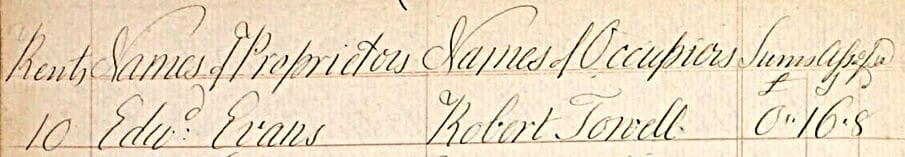 Rents Names of Proprietors Names of Occupiers Sums Assessed
£ s d
10 Edwd. Evans Robert Towell 0" 16 " 8